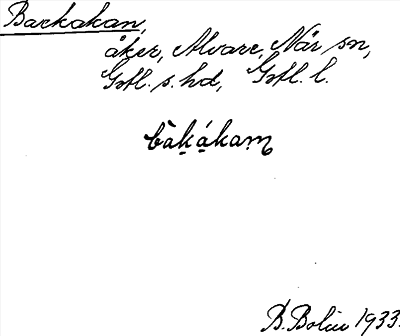 Backakan,
åker, Alvare, När sn,
Gotl. s. hd, Gotl. l.
bàḵá̱kaṃ
B. Bolin 1933.